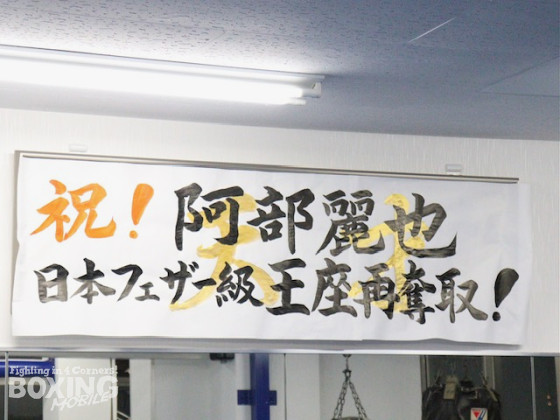 祝！阿部麗也
日本フェザー級王座再奪取！
Fighting in 4 Corners!
BOXING
MOBILE